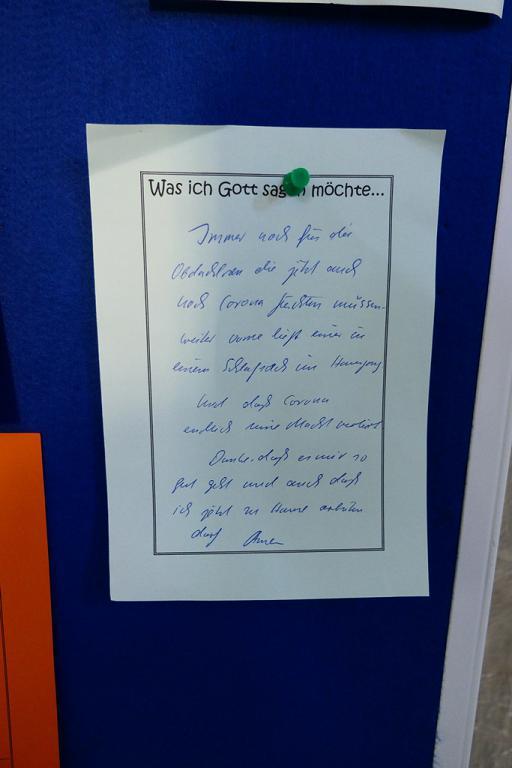 Was ich Gott sagen möchte...
Immer noch für die
Obdachlosen die jetzt auch
noch Corona fürchten müssen.
weiter vorne liegt einer in
einem Schlafsack im Hauseingang
Und daß Corona
endlich seine Macht verliert
Danke, daß es mir so
gut geht und auch daß
ich jetzt zu Hause arbeiten
darf Amen